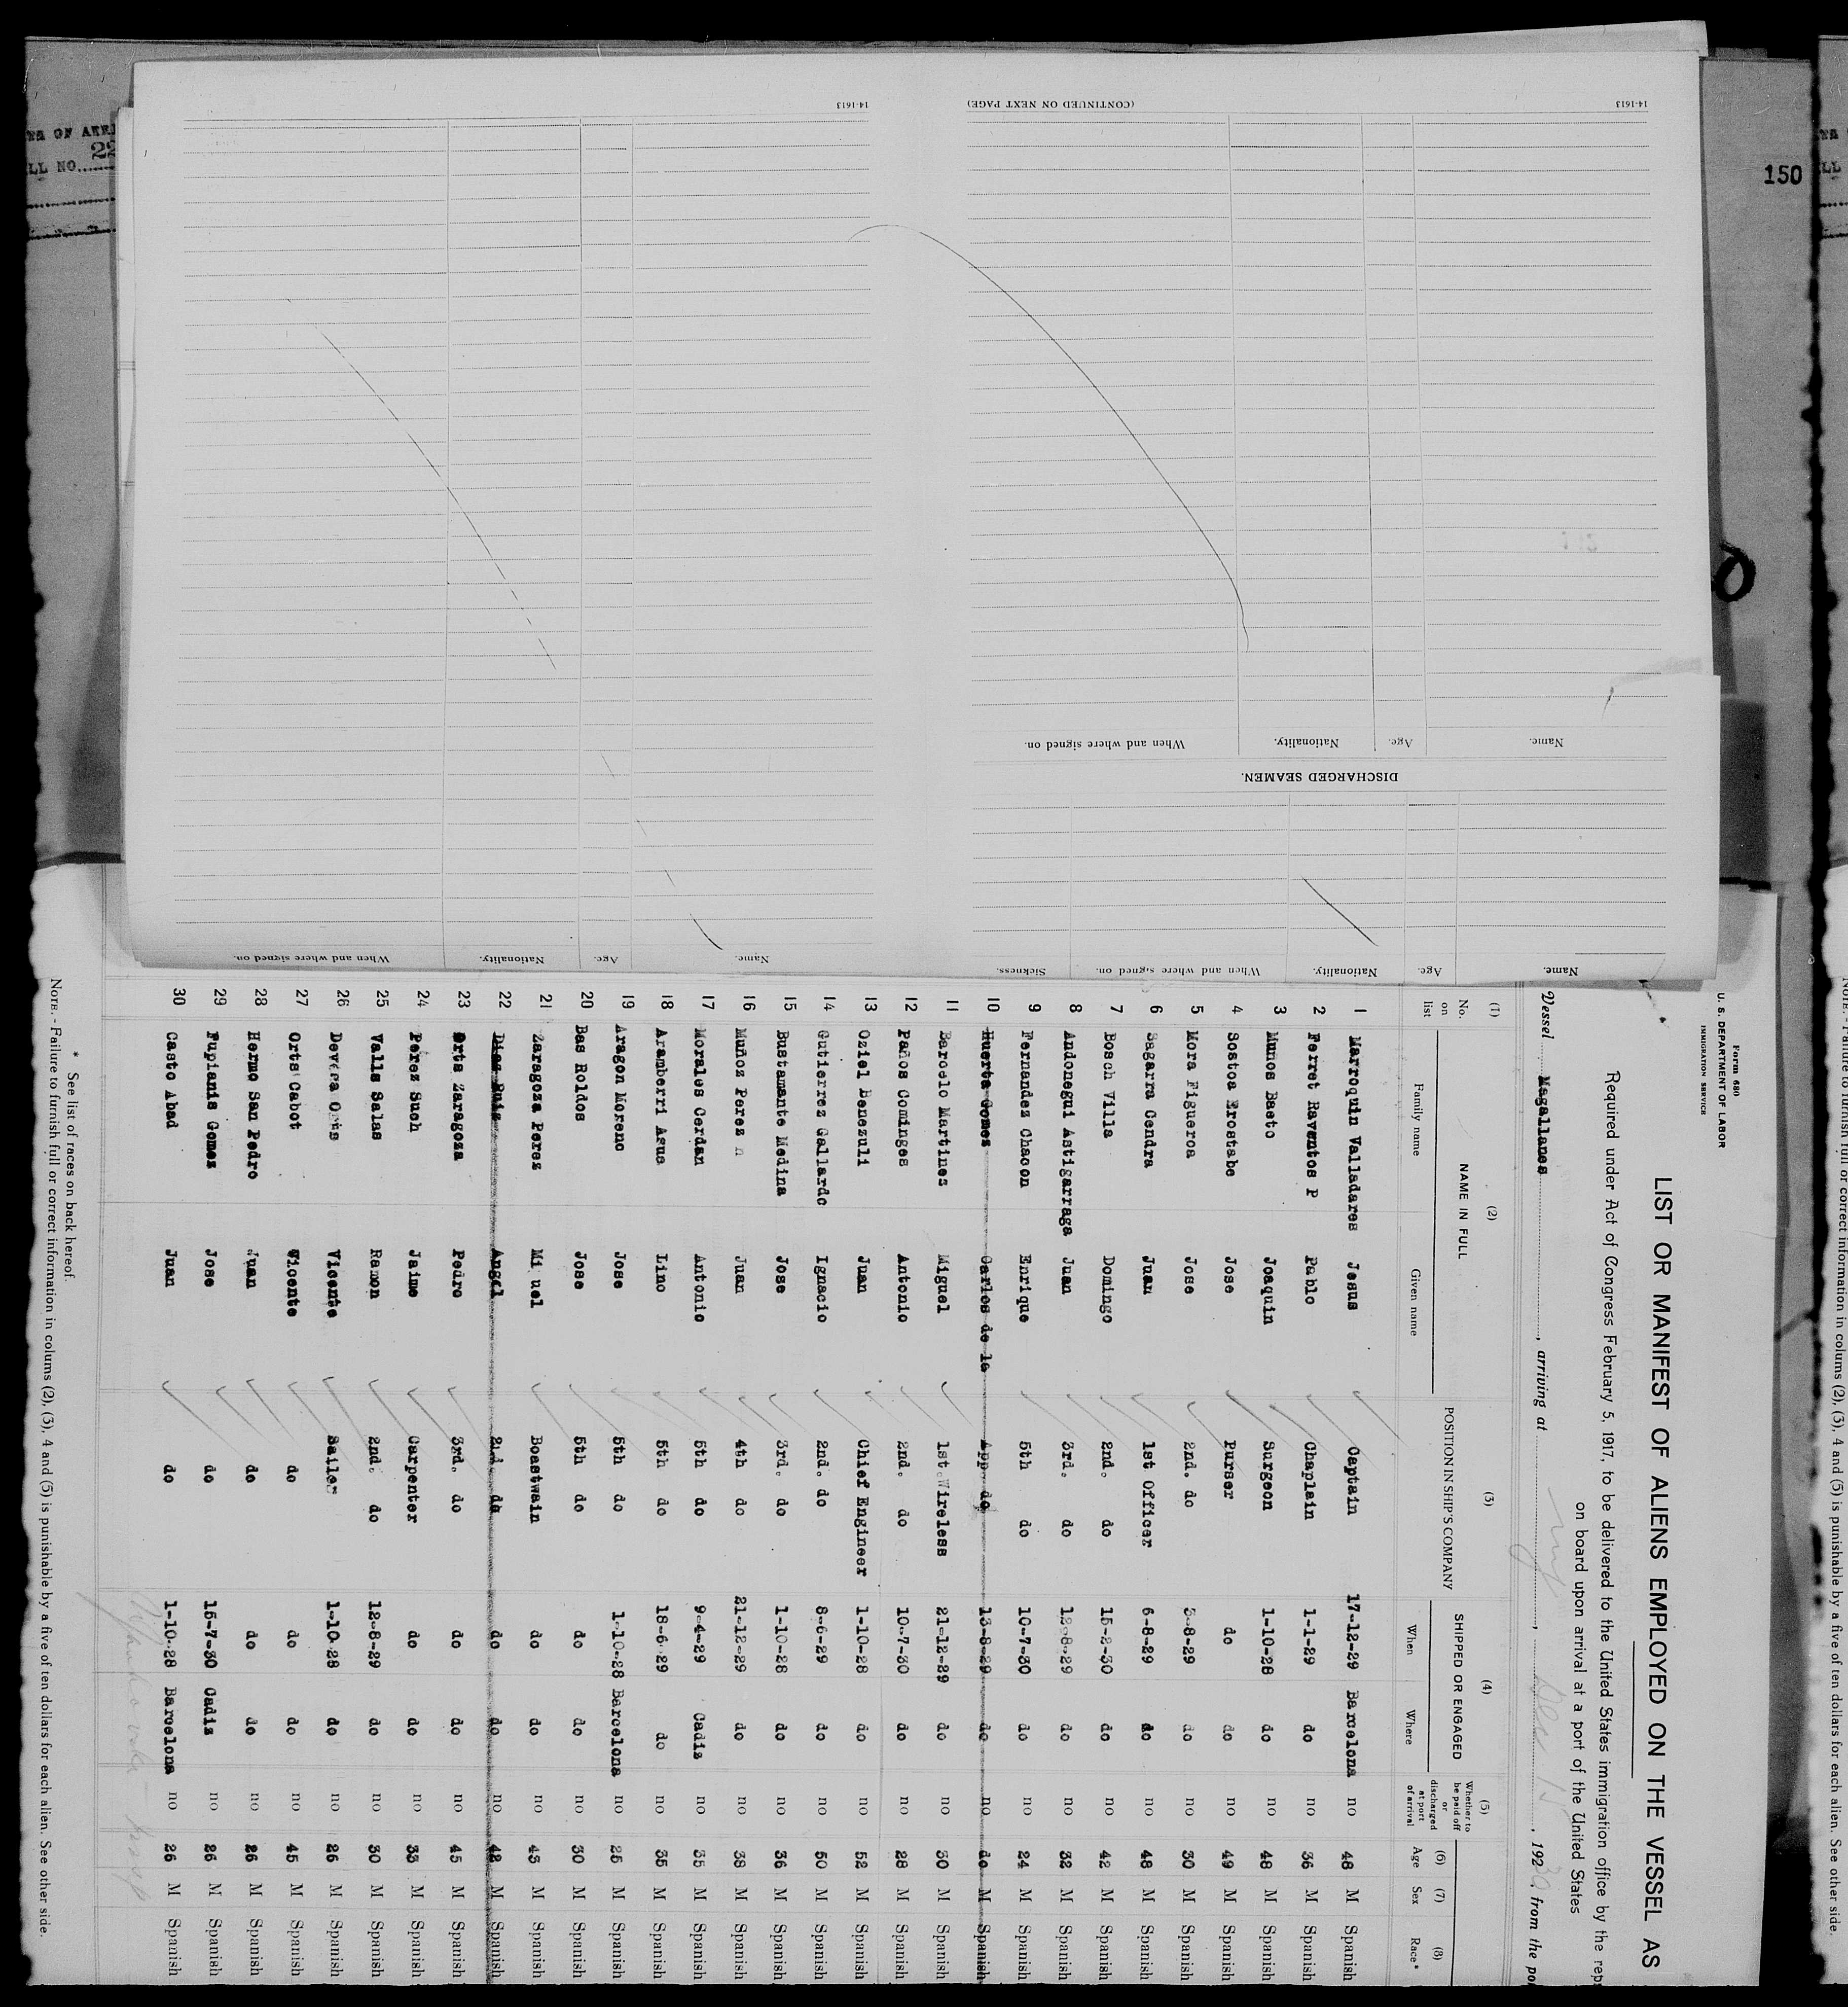 150
14-1613
(CONTINUED ON NEXT PAGE)
14-1613
DISCHARGED SEAMEN.
Name.
Age.
Nationality.
When and where signed on.
Name.
Age.
Nationality.
When and where signed on.
Sickness.
Name.
Age.
Nationality.
When and where signed on.
Form 680
U. S. DEPARTMENT OF LABOR
IMMIGRATION SERVICE
LIST OR MANIFEST OF ALIENS EMPLOYED ON THE VESSEL AS
Required under Act of Congress February 5, 1917, to be delivered to the United States immigration office by the
on board upon arrival at a port of the United States
Vessel Magallanes, arriving at Dec, 192 from the
(1) (2) (3) (4) (5) (6) (7) (8)
No. on list NAME IN FULL POSITION IN SHIP'S COMPANY SHIPPED OR ENGAGED Whether to be paid off or discharged at port of arrival Age Sex Race*
Family name Given name When Where
1 Marroquin Valladares Jesus Captain 17-12-29 Barcelona no 48 M Spanish
2 Ferret Raventos P Pablo Chaplain 1-1-29 do no 36 M Spanish
3 Munos Baeto Joaquin Surgeon 1-10-28 do no 48 M Spanish
4 Sostoa Erostabe Jose Purser do do no 49 M Spanish
5 Mora Figueroa Jose 2nd. do 3-8-29 do no 30 M Spanish
6 Sagarra Cendra Juan 1st Officer 6-8-29 do no 48 M Spanish
7 Bosch Villa Domingo 2nd. do 15-2-30 do no 42 M Spanish
8 Andonegui Astigarraga Juan 3rd. do 12-8-29 do no 32 M Spanish
9 Fernandez Chacon Enrique 5th do 10-7-30 do no 24 M Spanish
10 Huerta Gomez Carlos de la App. do 13-8-29 do no do M Spanish
11 Barcelo Martines Miguel 1st.Wireless 21-12-29 do no 30 M Spanish
12 Paños Cominges Antonio 2nd. do 10-7-30 do no 28 M Spanish
13 Oziel Benezuli Juan Chief Engineer 1-10-28 do no 52 M Spanish
14 Gutierrez Gallardo Ignacio 2nd. do 8-6-29 do no 50 M Spanish
15 Bustamante Medina Jose 3rd. do 1-10-28 do no 36 M Spanish
16 Muñoz Perez Juan 4th do 21-12-29 do no 38 M Spanish
17 Morales Cerdan Antonio 5th do 9-4-29 Cadiz no 35 M Spanish
18 Aramberri Asua Lino 5th do 18-6-29 do no 35 M Spanish
19 Aragon Moreno Jose 5th do 1-10-28 Barcelona no 25 M Spanish
20 Bas Roldos Jose 5th do do do no 30 M Spanish
21 Zaragoza Perez Mi uel Boastwain do do no 43 M Spanish
22 Dias Ruiz Angel 2nd. do do do no 42 M Spanish
23 Orts Zaragoza Pedro 3rd. do do do no 45 M Spanish
24 Perez Such Jaime Carpenter do do no 33 M Spanish
25 Valls Salas Ramon 2nd. do 12-8-29 do no 30 M Spanish
26 Devesa Orts Vicente Sailor 1-10-28 do no 26 M Spanish
27 Orts Cabot Vicente do do do no 45 M Spanish
28 Hermo San Pedro Juan do do do no 26 M Spanish
29 Pupianis Gomez Jose do 15-7-30 Cadiz no 26 M Spanish
30 Casto Abad Juan do 1-10-28 Barcelona no 26 M Spanish
* See list of races on back hereof.
NOTE. - Failure to furnish full or correct information in colums (2), (3), 4 and (5) is punishable by a five of ten dollars for each alien. See other side.